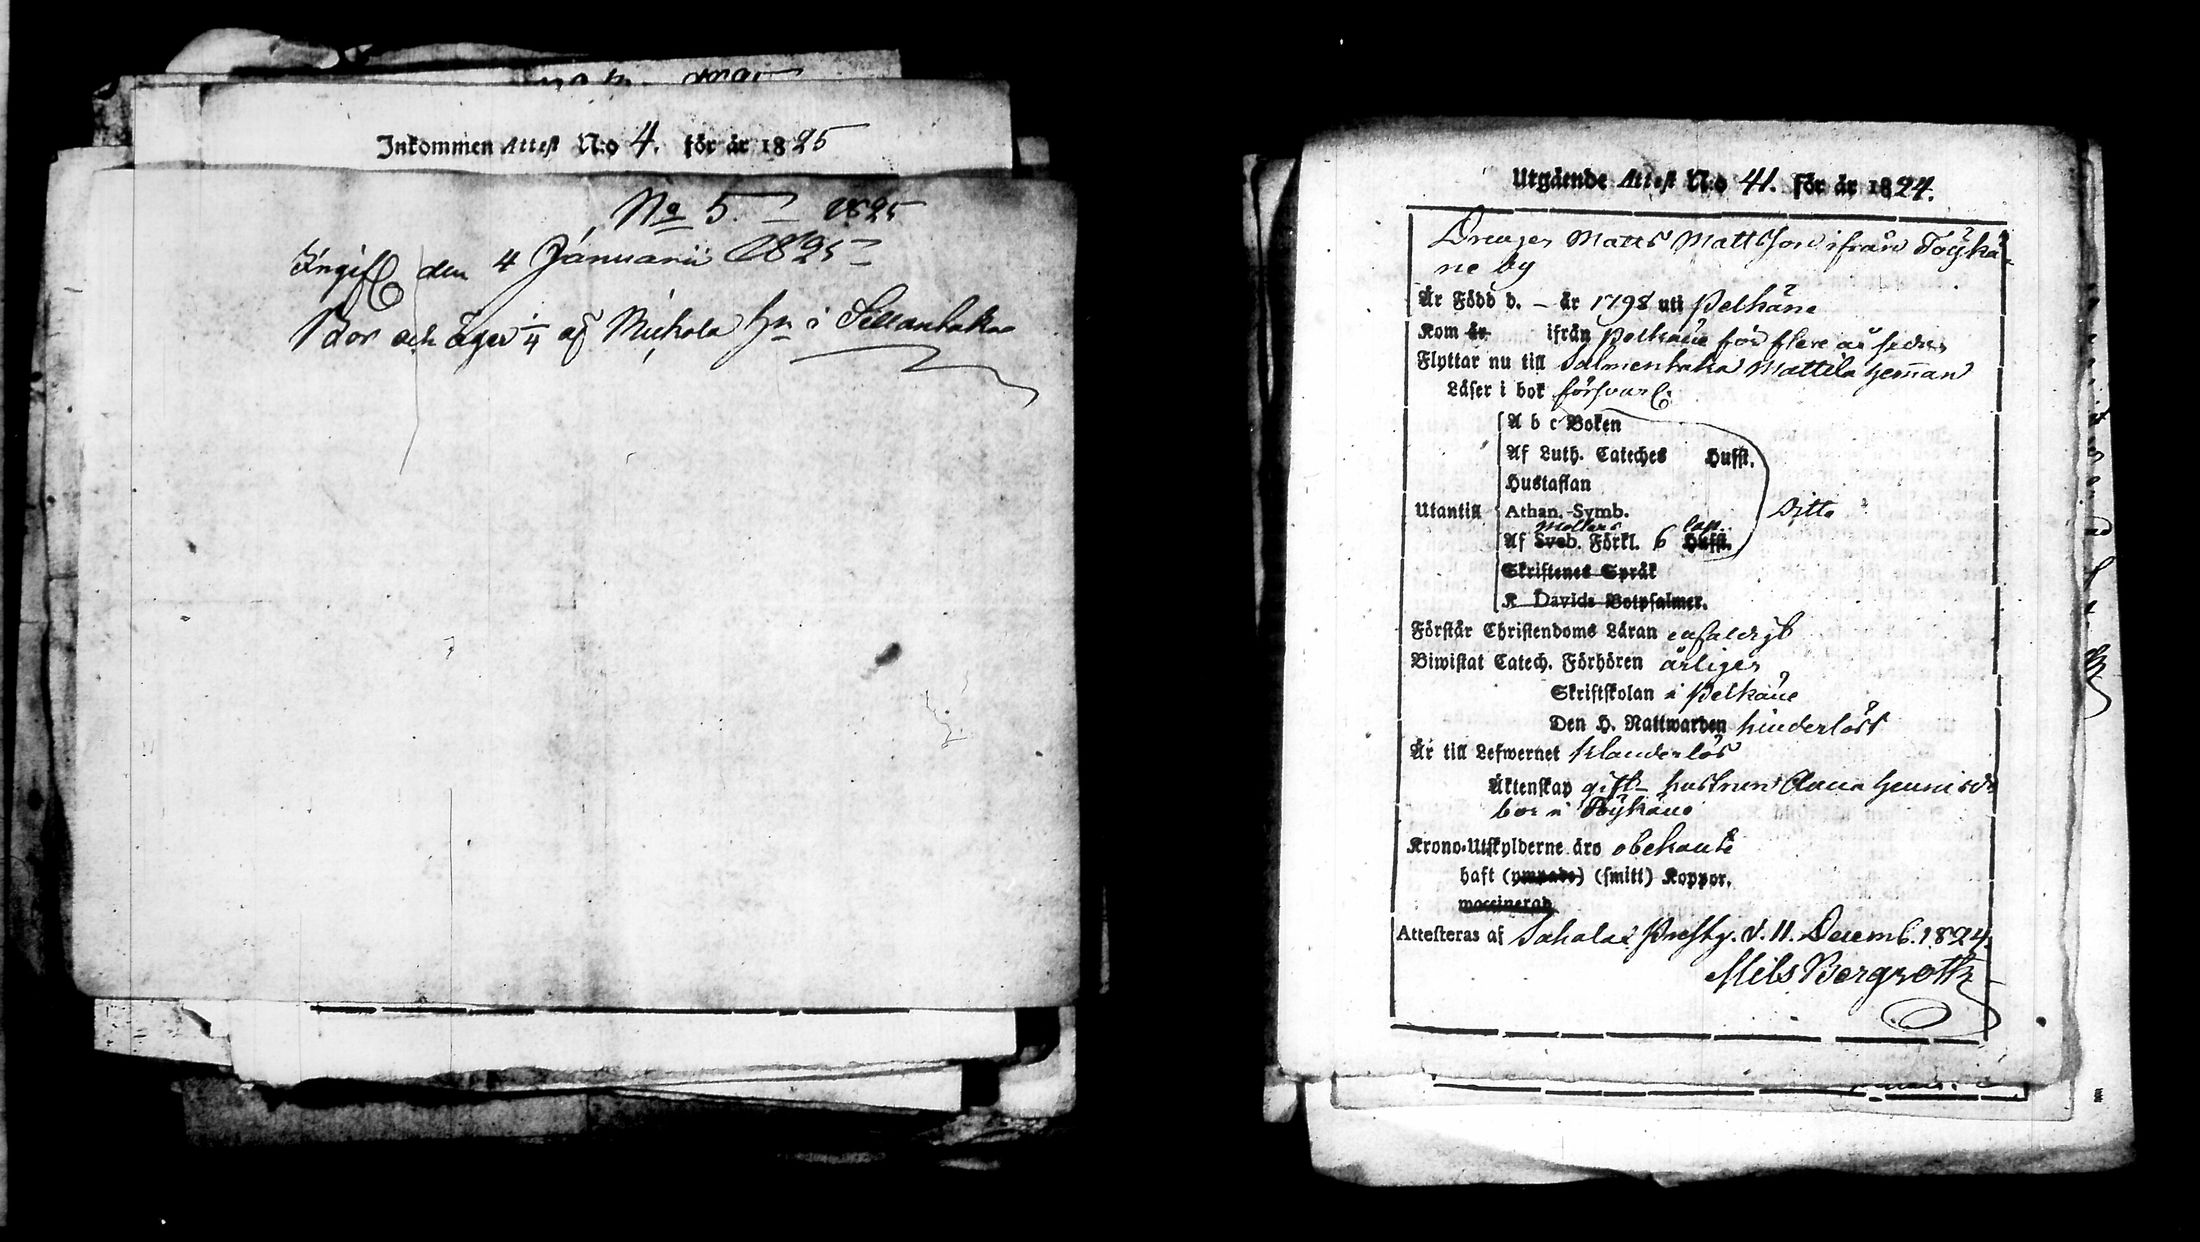 Inkommen Attest N:o 4. för år 1825
No 5. 1825
Ingifv. den 4 Januarii 1825
Bor och äger 1/4 af Mickola hn i Sillantaka
Utgående Attest N:o 41. För år 1824.
Drengen Matts Mattsson ifrån Töykä-
ne by
Är Född d. – år 1798 uti Pelkäne
Kom år ifrån Pelkäne för flere år sedan
Flyttar nu till Salmentaka Mattila hemman
Läser i bok försvarl.
A b c Boken
Af Luth. Cateches Hufst.
Hustaflan
Utantill Athan. Symb. Ditto
Möllers cap.
Af Sveb. Förkl. 6 Hufst.
Skriftenes Språk
K Davids Botpsalmer.
Förstår Christendoms Läran enfaldigt
Biwistat Catech. Förhören årligen
Skriftskolan i Pelkäne
Den H. Nattwarden hinderlöst
Är till Lefwernet klanderlös
Äktenskap gift hustrun Anna Hennisdr
bor i Töykäne
Krono-Utskylderne äro obekante
haft (ympade) (smitt) Koppor.
waccinerad
Attesteras af Sahalax Prestg. d. 11. Decemb. 1824.
Nils Bergroth